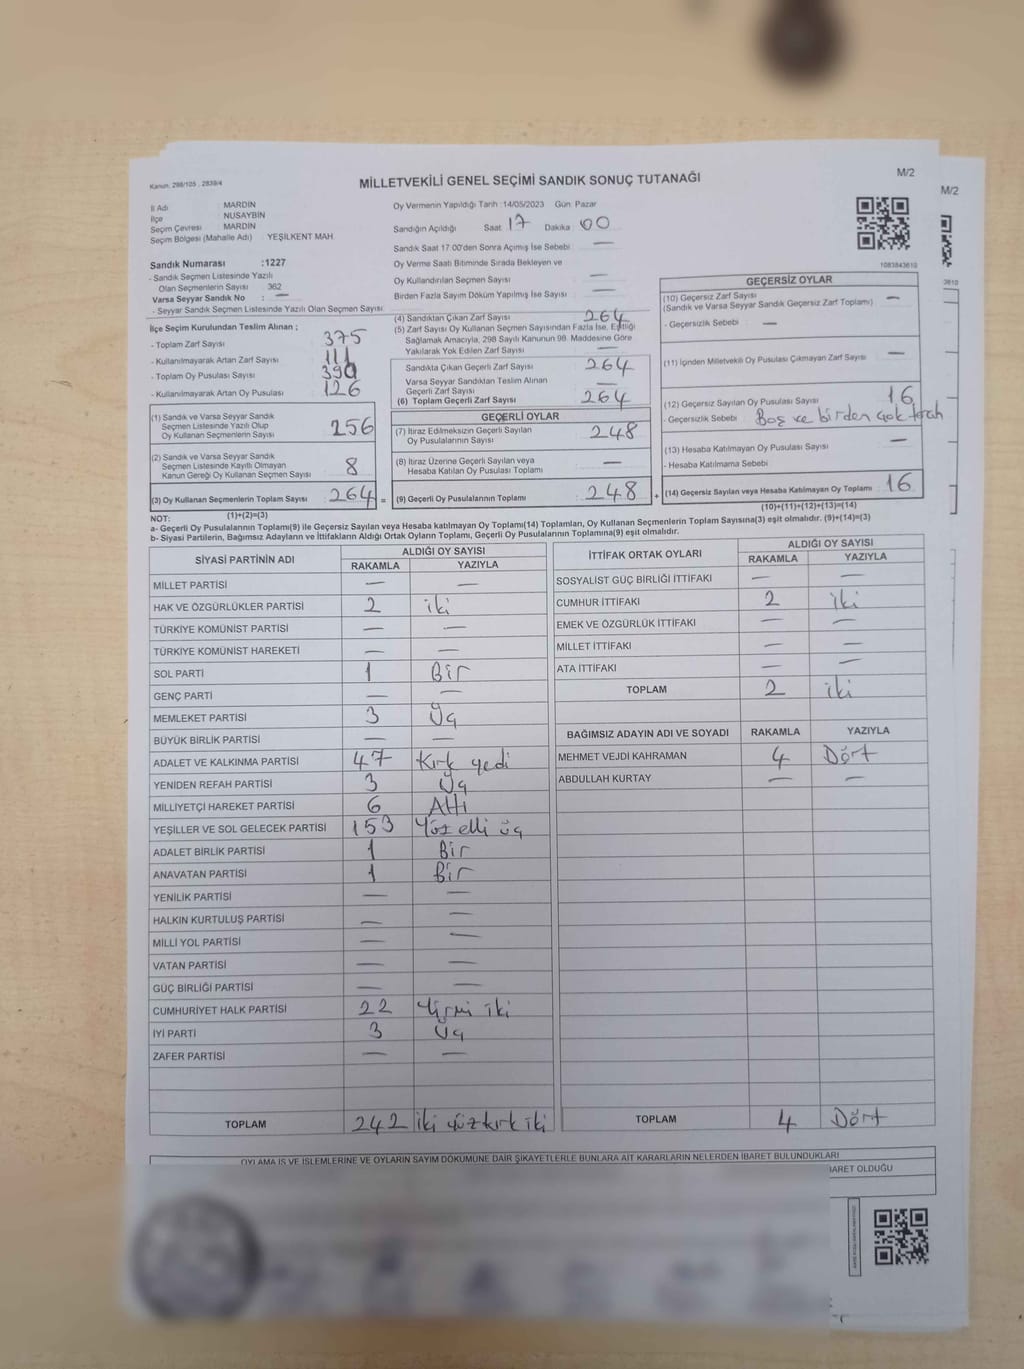 Kanun: 298/105 , 2839/4
MİLLETVEKİLİ GENEL SEÇİMİ SANDIK SONUÇ TUTANAĞI
M/2
M/2
İl Adı : MARDİN
İlçe : NUSAYBİN
Seçim Çevresi : MARDİN
Seçim Bölgesi (Mahalle Adı) : YEŞİLKENT MAH.
Sandık Numarası :1227
- Sandık Seçmen Listesinde Yazılı
Olan Seçmenlerin Sayısı : 362
Varsa Seyyar Sandık No : —
- Seyyar Sandık Seçmen Listesinde Yazılı Olan Seçmen Sayısı:
İlçe Seçim Kurulundan Teslim Alınan ;
- Toplam Zarf Sayısı : 375
- Kullanılmayarak Artan Zarf Sayısı : 111
- Toplam Oy Pusulası Sayısı : 390
- Kullanılmayarak Artan Oy Pusulası : 126
(1) Sandık ve Varsa Seyyar Sandık
Seçmen Listesinde Yazılı Olup
Oy Kullanan Seçmenlerin Sayısı : 256
(2) Sandık ve Varsa Seyyar Sandık
Seçmen Listesinde Kayıtlı Olmayan
Kanun Gereği Oy Kullanan Seçmen Sayısı : 8
(3) Oy Kullanan Seçmenlerin Toplam Sayısı : 264 =
(1)+(2)=(3)
Oy Vermenin Yapıldığı Tarih :14/05/2023 Gün: Pazar
Sandığın Açıldığı Saat 17 Dakika 00
Sandık Saat 17:00'den Sonra Açılmış İse Sebebi : —
Oy Verme Saati Bitiminde Sırada Bekleyen ve
Oy Kullandırılan Seçmen Sayısı : —
Birden Fazla Sayım Döküm Yapılmış İse Sayısı : —
(4) Sandıktan Çıkan Zarf Sayısı : 264
(5) Zarf Sayısı Oy Kullanan Seçmen Sayısından Fazla İse, Eşitliği
Sağlamak Amacıyla, 298 Sayılı Kanunun 98. Maddesine Göre
Yakılarak Yok Edilen Zarf Sayısı : —
Sandıkta Çıkan Geçerli Zarf Sayısı : 264
Varsa Seyyar Sandıktan Teslim Alınan
Geçerli Zarf Sayısı : —
(6) Toplam Geçerli Zarf Sayısı : 264
GEÇERLİ OYLAR
(7) İtiraz Edilmeksizin Geçerli Sayılan
Oy Pusulalarının Sayısı : 248
(8) İtiraz Üzerine Geçerli Sayılan veya
Hesaba Katılan Oy Pusulası Toplamı : —
(9) Geçerli Oy Pusulalarının Toplamı : 248 +
1083843610
3610
GEÇERSİZ OYLAR
(10) Geçersiz Zarf Sayısı : —
(Sandık ve Varsa Seyyar Sandık Geçersiz Zarf Toplamı)
- Geçersizlik Sebebi : —
(11) İçinden Milletvekili Oy Pusulası Çıkmayan Zarf Sayısı : —
(12) Geçersiz Sayılan Oy Pusulası Sayısı : 16
- Geçersizlik Sebebi : Boş ve birden çok
(13) Hesaba Katılmayan Oy Pusulası Sayısı : —
- Hesaba Katılmama Sebebi :
(14) Geçersiz Sayılan veya Hesaba Katılmayan Oy Toplamı : 16
(10)+(11)+(12)+(13)=(14)
NOT:
a- Geçerli Oy Pusulalarının Toplamı(9) ile Geçersiz Sayılan veya Hesaba katılmayan Oy Toplamı(14) Toplamları, Oy Kullanan Seçmenlerin Toplam Sayısına(3) eşit olmalıdır. (9)+(14)=(3)
b- Siyasi Partilerin, Bağımsız Adayların ve İttifakların Aldığı Ortak Oyların Toplamı, Geçerli Oy Pusulalarının Toplamına(9) eşit olmalıdır.
SİYASİ PARTİNİN ADI ALDIĞI OY SAYISI
RAKAMLA YAZIYLA
MİLLET PARTİSİ — —
HAK VE ÖZGÜRLÜKLER PARTİSİ 2 iki
TÜRKİYE KOMÜNİST PARTİSİ — —
TÜRKİYE KOMÜNİST HAREKETİ — —
SOL PARTİ 1 Bir
GENÇ PARTİ — —
MEMLEKET PARTİSİ 3 Üç
BÜYÜK BİRLİK PARTİSİ — —
ADALET VE KALKINMA PARTİSİ 47 Kırk yedi
YENİDEN REFAH PARTİSİ 3 Üç
MİLLİYETÇİ HAREKET PARTİSİ 6 Altı
YEŞİLLER VE SOL GELECEK PARTİSİ 153 Yüz elli üç
ADALET BİRLİK PARTİSİ 1 Bir
ANAVATAN PARTİSİ 1 Bir
YENİLİK PARTİSİ — —
HALKIN KURTULUŞ PARTİSİ — —
MİLLİ YOL PARTİSİ — —
VATAN PARTİSİ — —
GÜÇ BİRLİĞİ PARTİSİ — —
CUMHURİYET HALK PARTİSİ 22 Yirmi iki
İYİ PARTİ 3 Üç
ZAFER PARTİSİ — —
TOPLAM 242 iki yüz kırk iki
İTTİFAK ORTAK OYLARI ALDIĞI OY SAYISI
RAKAMLA YAZIYLA
SOSYALİST GÜÇ BİRLİĞİ İTTİFAKI — —
CUMHUR İTTİFAKI 2 iki
EMEK VE ÖZGÜRLÜK İTTİFAKI — —
MİLLET İTTİFAKI — —
ATA İTTİFAKI — —
TOPLAM 2 iki
BAĞIMSIZ ADAYIN ADI VE SOYADI RAKAMLA YAZIYLA
MEHMET VEJDİ KAHRAMAN 4 Dört
ABDULLAH KURTAY — —
TOPLAM 4 Dört
OYLAMA İŞ VE İŞLEMLERİNE VE OYLARIN SAYIM DÖKÜMÜNE DAİR ŞİKAYETLERLE BUNLARA AİT KARARLARIN NELERDEN İBARET BULUNDUKLARI
İBARET OLDUĞU